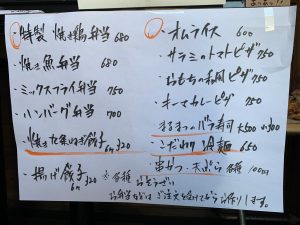 ・特製 焼き鶏弁当 680
・焼き魚弁当 680
・ミックスフライ弁当 750
・ハンバーグ弁当 700
・焼き九条ねぎ餃子 6ヶ 320
・揚げ餃子 6ヶ 320
・オムライス 600
・サラミのトマトピザ 750
・おもちの和風ピザ 750
・キーマカレーピザ 750
・まるまつのバラ寿司 大500 小300
・こだわり 冷麺 650
・串かつ・天ぷら 各種 100円
※各種
お弁当などは ご注文を受けてから お作りします。